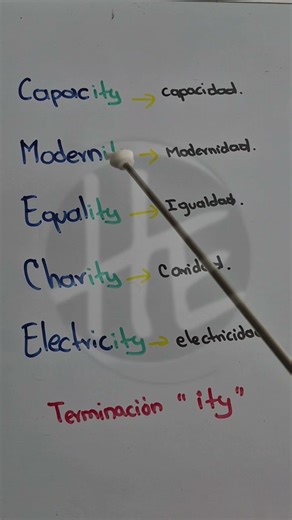 Capacity → capacidad.
Modernit → Modernidad.
Equality → Igualdad.
Charity → Caridad.
Electricity → electricidad
Terminación "ity"